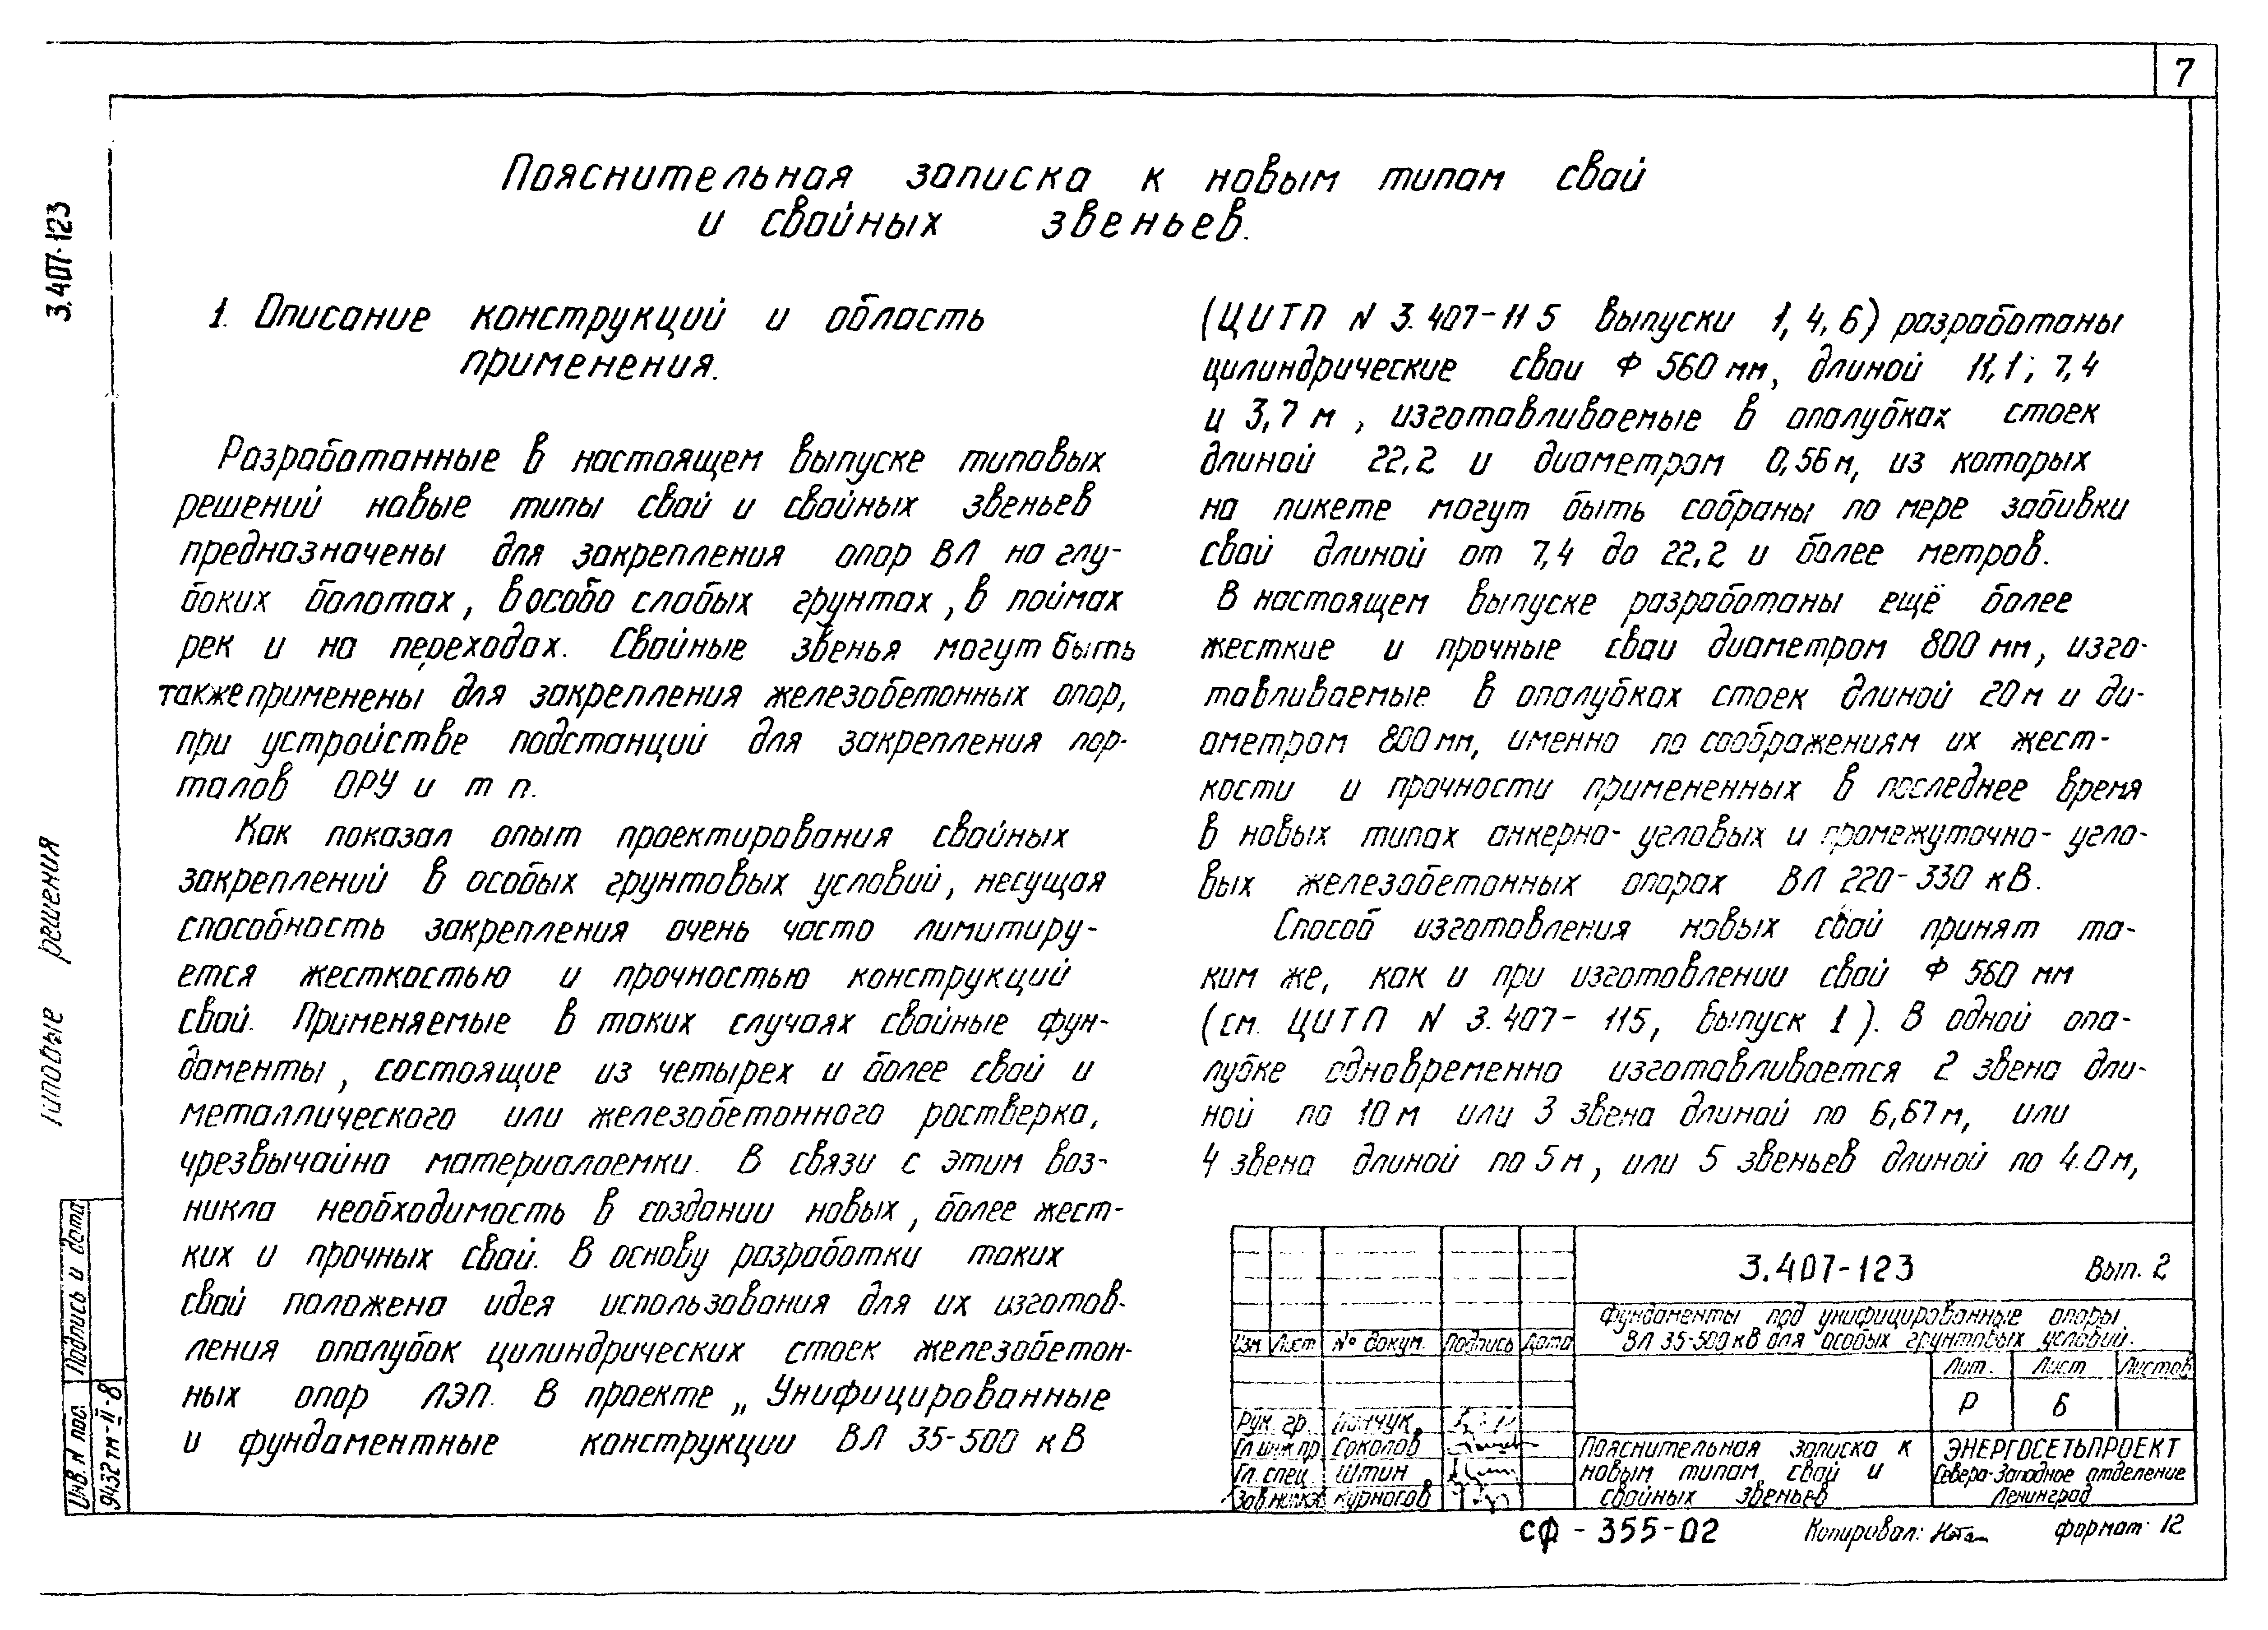 7
3.407-123
Типовые решения
Пояснительная записка к новым типам свай
и свайных звеньев.
1. Описание конструкций и область
применения.
Разработанные в настоящем выпуске типовых
решений новые типы свай и свайных звеньев
предназначены для закрепления опор ВЛ на глу-
боких болотах, в особо слабых грунтах, в поймах
рек и на переходах. Свайные звенья могут быть
также применены для закрепления железобетонных опор,
при устройстве подстанций для закрепления пор-
талов ОРУ и т п.
Как показал опыт проектирования свайных
закреплений в особых грунтовых условий, несущая
способность закрепления очень часто лимитиру-
ется жесткостью и прочностью конструкций
свай. Применяемые в таких случаях свайные фун-
даменты, состоящие из четырех и более свай и
металлического или железобетонного ростверка,
чрезвычайно материалоемки. В связи с этим воз-
никла необходимость в создании новых, более жест-
ких и прочных свай. В основу разработки таких
свай положена идея использования для их изготов-
ления опалубок цилиндрических стоек железобетон-
ных опор ЛЭП. В проекте „Унифицированные
и фундаментные конструкции ВЛ 35-500 кВ
(ЦИТП N 3.407-115 выпуски 1, 4, 6) разработаны
цилиндрические сваи Ф 560 мм, длиной 11,1; 7,4
и 3,7 м, изготавливаемые в опалубках стоек
длиной 22,2 и диаметром 0,56 м, из которых
на пикете могут быть собраны по мере забивки
свай длиной от 7,4 до 22,2 и более метров.
В настоящем выпуске разработаны ещё более
жесткие и прочные сваи диаметром 800 мм, изго-
тавливаемые в опалубках стоек длиной 20 м и ди-
аметром 800 мм, именно по соображениям их жест-
кости и прочности примененных в последнее время
в новых типах анкерно-угловых и промежуточно-угло-
вых железобетонных опорах ВЛ 220-330 кВ.
Способ изготовления новых свай принят та-
ким же, как и при изготовлении свай Ф 560 мм
(см. ЦИТП N 3.407-115, выпуск 1). В одной опа-
лубке одновременно изготавливается 2 звена дли-
ной по 10 м или 3 звена длиной по 6,67 м, или
4 звена длиной по 5 м, или 5 звеньев длиной по 4.0 м,
Подпись и дата
Инв. N под.
9432 тм-II-8
3.407-123 Вып. 2
Фундаменты под унифицированные опоры
ВЛ 35-500 кВ для особых грунтовых условий.
Изм Лист № докум. Подпись Дата
Лит. Лист Листов
Р 6
Рук. гр.
Гл инж.пр Соколов
Гл. спец. Штин
Курносов
Пояснительная записка к
новым типам свай и
свайных звеньев
ЭНЕРГОСЕТЬПРОЕКТ
Северо-Западное отделение
Ленинград
СФ-355-02
Копировал:
формат 12